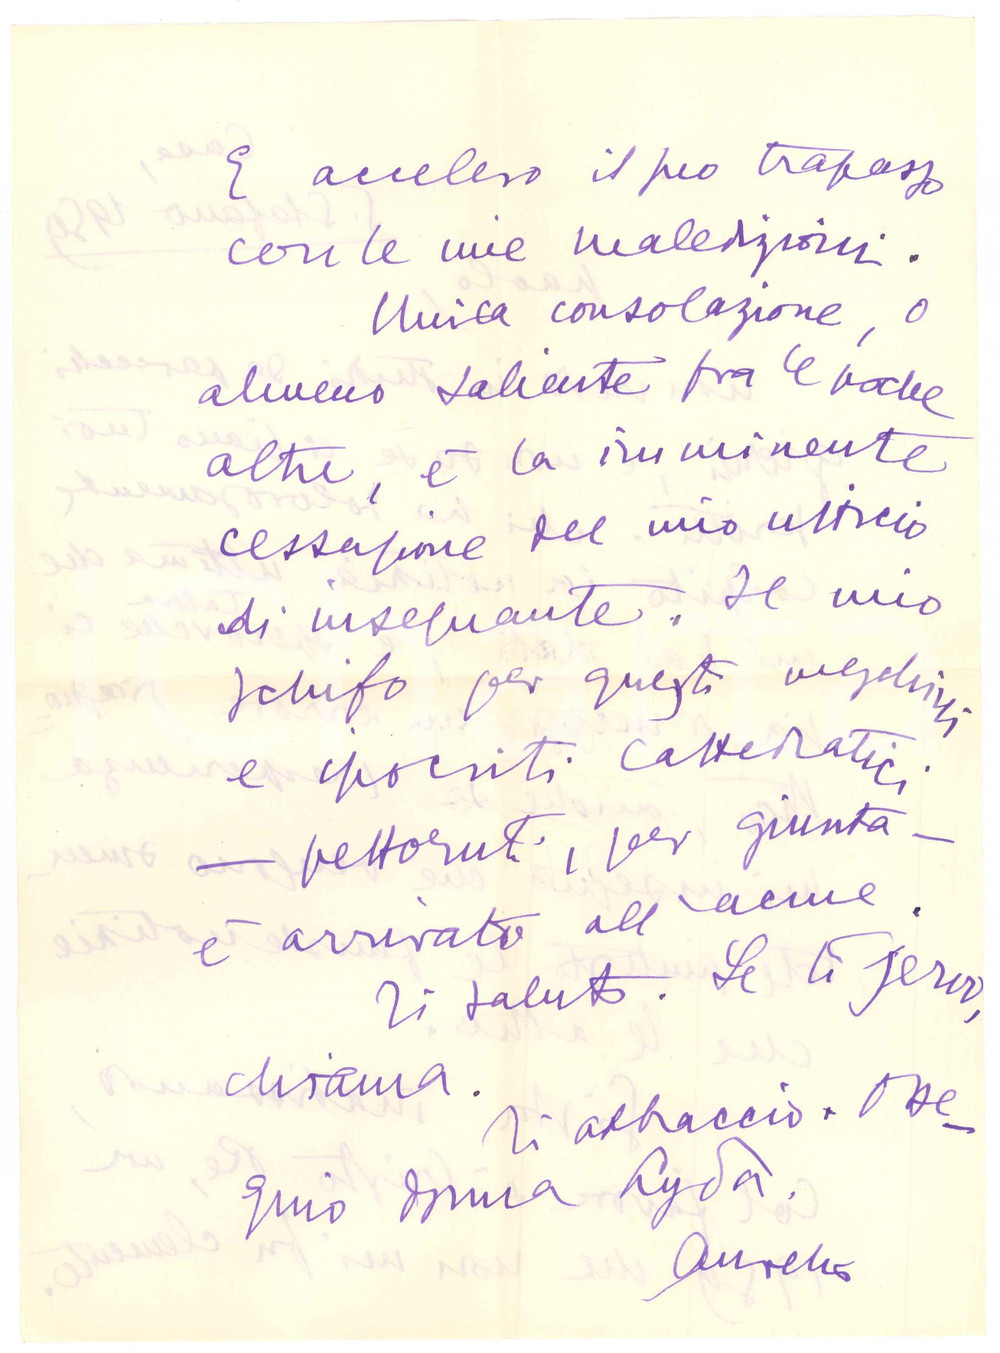 E accelero il suo trapasso
con le mie maledizioni.
Unica consolazione, o
almeno saliente fra le poche
altre, è la imminente
cessazione del mio ufficio
di insegnante. Il mio
schifo per questi meschini
e ipocriti cattedratici
— pettoruti, per giunta —
è arrivato all'acme.
Ti saluto. Se ti servo,
chiama.
Ti abbraccio. Osse-
quio donna Lyda.
Aurelio